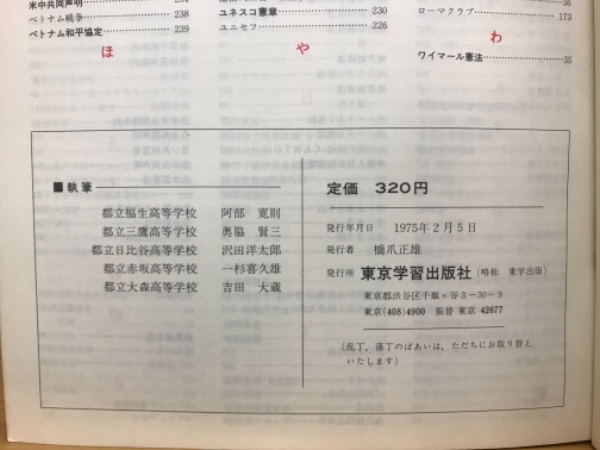 米中共同声明
ベトナム戦争 238
ベトナム和平協定 239
ほ
ユネスコ憲章 230
ユニセフ 226
や
ローマクラブ 173
わ
ワイマール憲法 35
■執筆
都立福生高等学校 阿部 寛則
都立三鷹高等学校 奥脇 賢三
都立日比谷高等学校 沢田洋太郎
都立赤坂高等学校 一杉喜久雄
都立大森高等学校 吉田 大蔵
定価 320円
発行年月日 1975年2月5日
発行者 橋爪正雄
発行所 東京学習出版社 (略称 東学出版)
東京都渋谷区千駄ヶ谷3-30-9
東京(408)4900 振替 東京 42677
(乱丁、落丁のばあいは、ただちにお取り替え
いたします)